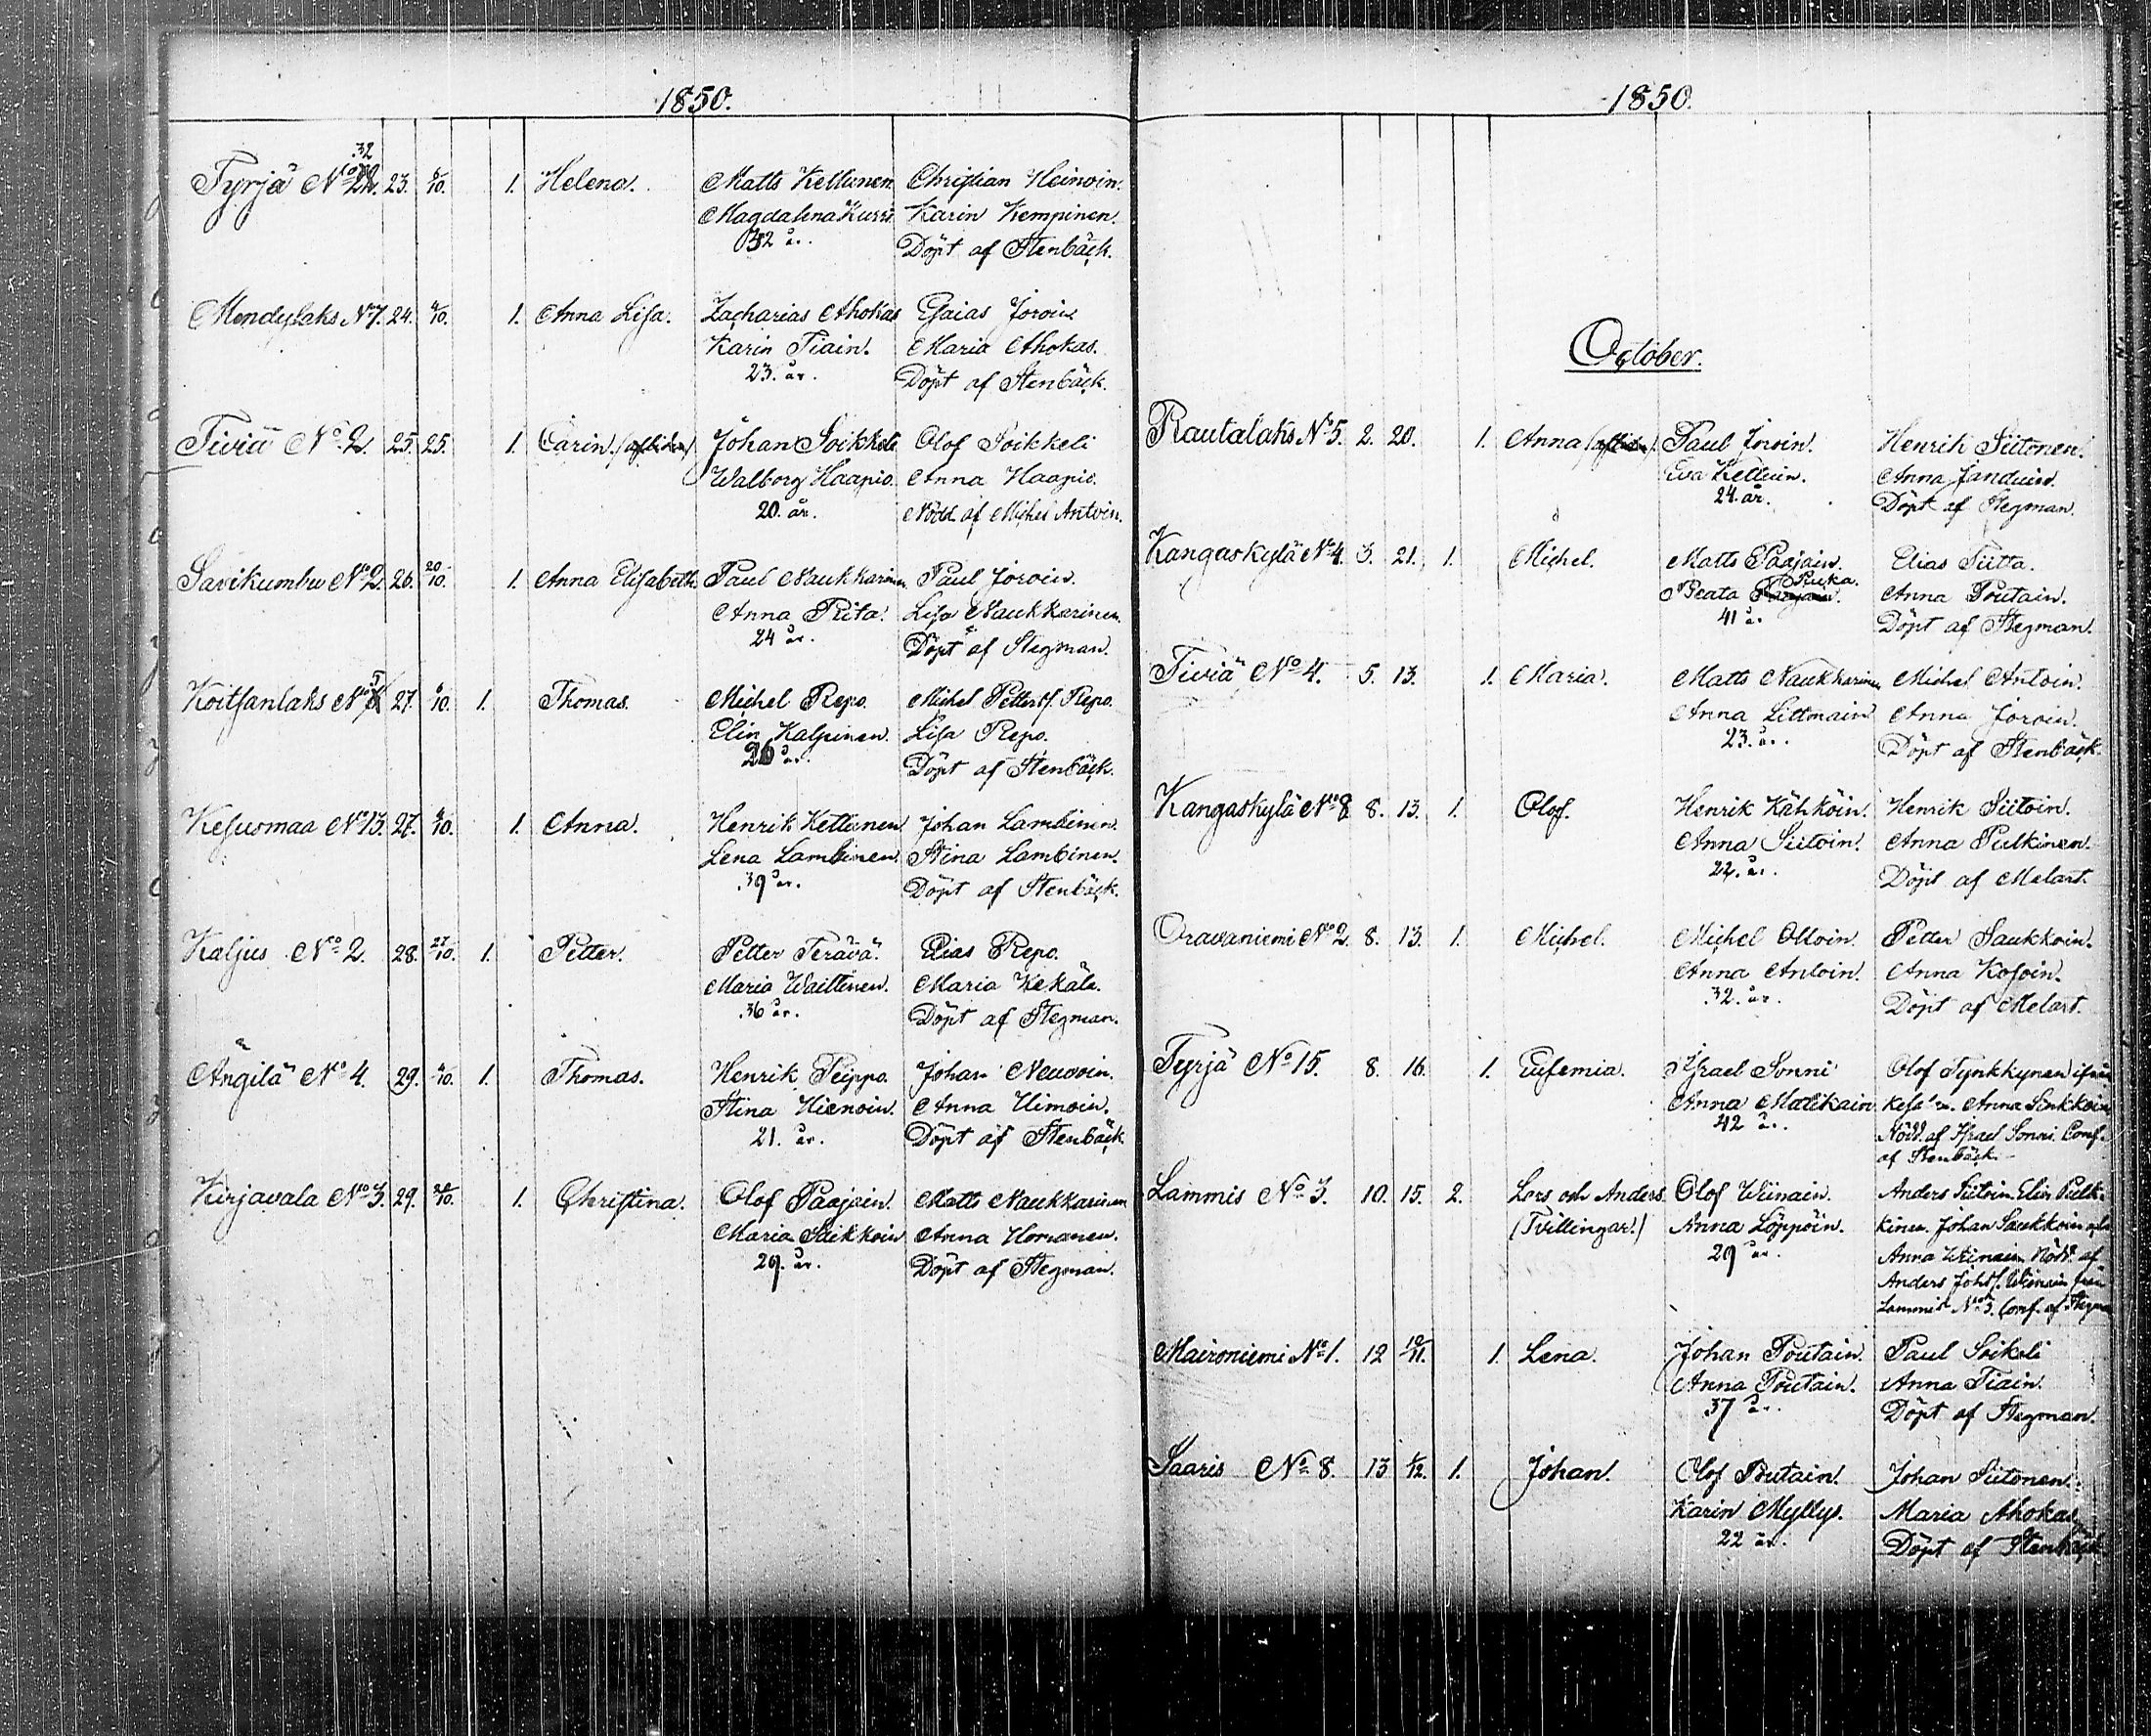 1850.
Tyrjä No 22. 32 23. 6/10. 1. Helena. Matts Kettunen Christian Heinoin.
Magdalena Kurri Karin Kempinen.
32 år. Döpt af Stenbäck.
Mendylaks No 7. 24. 6/10. 1. Anna Lisa. Zacharias Ahokas Esaias Joroin
Karin Tiain. Maria Ahokas.
23. år. Döpt af Stenbäck.
Tiviä No 2. 25. 25. 1. Carin. (afliden) Johan Soikkeli Olof Soikkeli
Walborg Haapio. Anna Haapio.
20. år. Nödd. af Michel Antoin.
Savikumbu No 2. 26. 20/10. 1. Anna Elisabeth. Paul Naukkarinen Paul Joroin.
Anna Rita. Lisa Naukkarinen.
24 år. Döpt af Stegman.
Koitsanlaks No 5 27. 6/10. 1. Thomas. Michel Repo. Michel Petters. Repo.
Elin Kalpinen. Lisa Repo.
26 år. Döpt af Stenbäck.
Kesusmaa No 13. 27. 6/10. 1. Anna. Henrik Kettunen Johan Lambinen.
Lena Lambinen. Stina Lambinen.
39 år. Döpt af Stenbäck.
Kaljus No 2. 28. 27/10. 1. Petter. Petter Terävä. Elias Repo.
Maria Waittinen. Maria Kekäla.
36 år. Döpt af Stegman.
Ängilä No 4. 29. 6/10. 1. Thomas. Henrik Peippo. Johan Neuvoin.
Stina Hienoin. Anna Uimoin.
21. år. Döpt af Stenbäck
Kirjavala No 3. 29. 1. Christina. Olof Paajain. Matts Naukkarinen
Maria Säikkoin Anna Homanen.
29. år. Döpt af Stegman.
1850.
October.
Rautalaks No 5. 2. 20. 1. Anna (afliden). Paul Joroin. Henrik Siitonen.
Eva Kettuin. Anna Janduin.
24 år. Döpt af Stegman.
Kangaskylä No 4. 3. 21. 1. Michel. Matts Paajain. Elias Siitta.
Beata Puka. Anna Poutain.
41 år. Döpt af Stegman.
Tiviä No 4. 5. 13. 1. Maria. Matts Naukkarinen Michel Antoin.
Anna Littmain Anna Joroin.
23. år. Döpt af Stenbäck.
Kangaskylä No 8 8. 13. 1. Olof. Henrik Kähköin. Henrik Siitoin.
Anna Siitoin. Anna Pulkinen.
22. år. Döpt af Melart.
Oravaniemi No 2 8. 13. 1. Michel. Michel Olloin. Petter Saukkoin.
Anna Antoin. Anna Kosoin.
32. år. Döpt af Melart.
Tyrjä No 15. 8. 16. 1. Eufemia. Israel Sonni Olof Tynkkynen ifrån
Anna Matikain Anna Sinkkoin
42 år. Nödd. af Israel Sonni. Conf.
af Stenbäck.
Lammis No 3. 10. 15. 2. Lars och Anders. Olof Wiinain. Anders Siitoin. Elin Pulk-
(Tvillingar.) Anna Löppöin. kinen. Johan Saukkoin och
29 år. Anna Weinain Nödd. af
Anders Johs. Weinain från
Lammis No 3. Conf. af Stegman
Maironiemi No 1. 12 10/11. 1. Lena. Johan Poutain. Paul Soikeli
Anna Poutain. Anna Tiain.
37 år. Döpt af Stegman.
Saaris No 8. 13 1/12. 1. Johan. Olof Poutain. Johan Siitonen.
Karin Myllys. Maria Ahokas
22 år. Döpt af Stenbäck